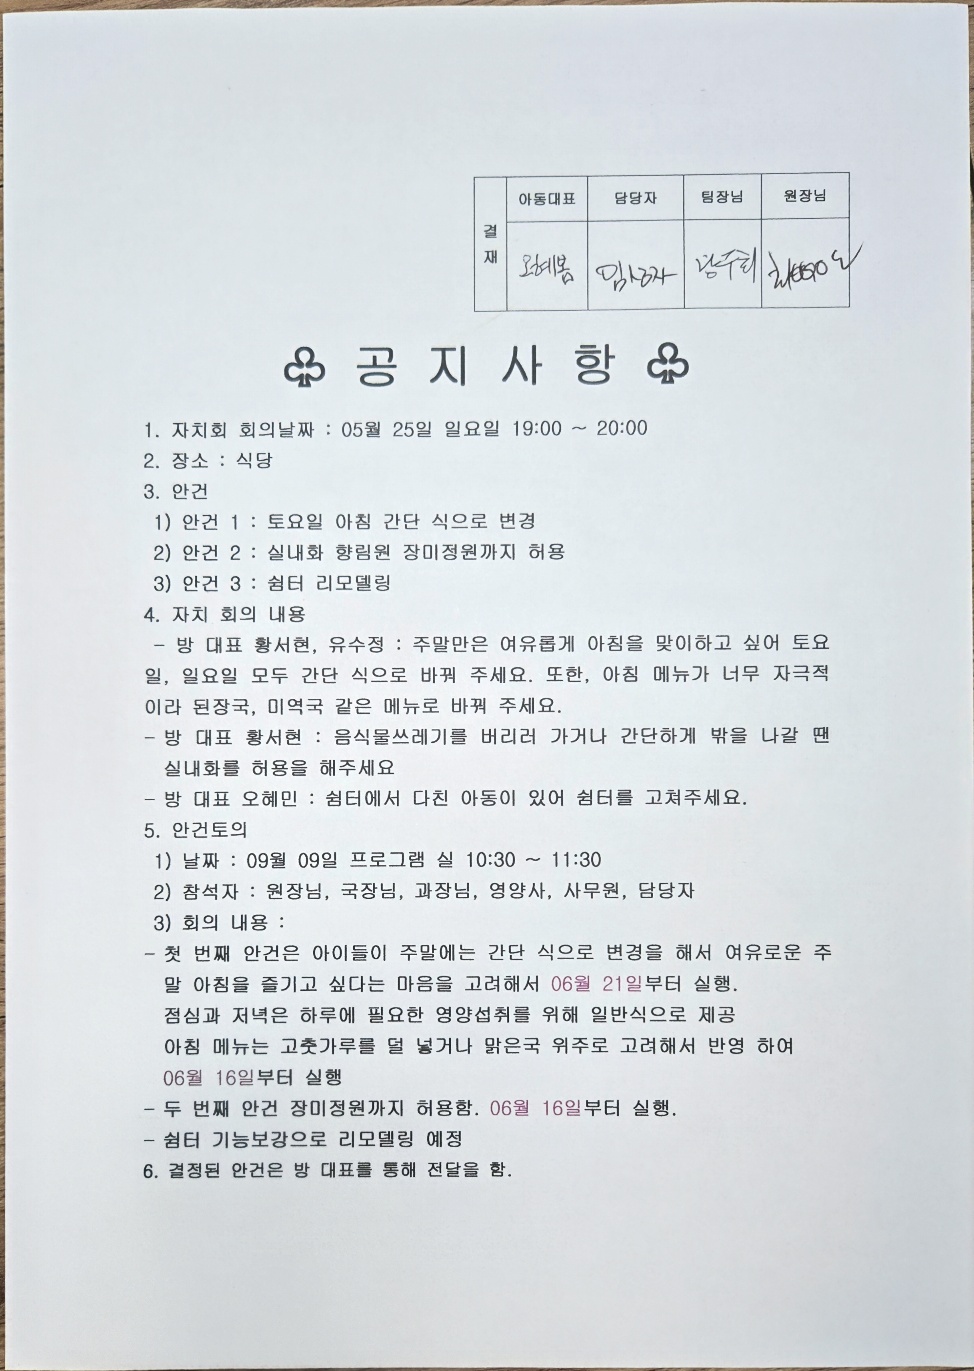 결재
아동대표 담당자 팀장님 원장님
♧ 공 지 사 항 ♧
1. 자치회 회의날짜 : 05월 25일 일요일 19:00 ~ 20:00
2. 장소 : 식당
3. 안건
1) 안건 1 : 토요일 아침 간단 식으로 변경
2) 안건 2 : 실내화 향림원 장미정원까지 허용
3) 안건 3 : 쉼터 리모델링
4. 자치 회의 내용
- 방 대표 황서현, 유수정 : 주말만은 여유롭게 아침을 맞이하고 싶어 토요
일, 일요일 모두 간단 식으로 바꿔 주세요. 또한, 아침 메뉴가 너무 자극적
이라 된장국, 미역국 같은 메뉴로 바꿔 주세요.
- 방 대표 황서현 : 음식물쓰레기를 버리러 가거나 간단하게 밖을 나갈 땐
실내화를 허용을 해주세요
- 방 대표 오혜민 : 쉼터에서 다친 아동이 있어 쉼터를 고쳐주세요.
5. 안건토의
1) 날짜 : 09월 09일 프로그램 실 10:30 ~ 11:30
2) 참석자 : 원장님, 국장님, 과장님, 영양사, 사무원, 담당자
3) 회의 내용 :
- 첫 번째 안건은 아이들이 주말에는 간단 식으로 변경을 해서 여유로운 주
말 아침을 즐기고 싶다는 마음을 고려해서 06월 21일부터 실행.
점심과 저녁은 하루에 필요한 영양섭취를 위해 일반식으로 제공
아침 메뉴는 고춧가루를 덜 넣거나 맑은국 위주로 고려해서 반영 하여
06월 16일부터 실행
- 두 번째 안건 장미정원까지 허용함. 06월 16일부터 실행.
- 쉼터 기능보강으로 리모델링 예정
6. 결정된 안건은 방 대표를 통해 전달을 함.